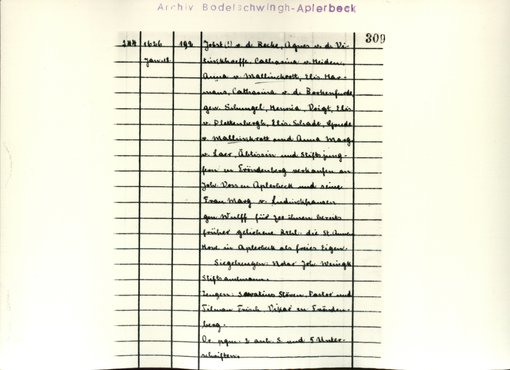 Archiv Bodelschwingh-Aplerbeck
309
1626 193 Jobst (!) v. d. Recke, Agnes v. d. Vi-
Jan. 18 tinckhoeffe, Catharina v. Heiden,
Anna v. Mallinckrott, Elis. Har-
mans, Catharina v. d. Borkenfurde
gen. Schungel, Henrica Voigt, Elis.
v. Plettenbergh, Elis. Schade,
v. Mallinckrott und Anna Marg.
v. Laer, Äbtissin und Stiftsjung-
fern in Fröndenberg verkaufen an
Joh. Voss in Aplerbeck und seine
Frau Marg. v. Ludinckhausen
gen. Wulff für 700 ihnen bereits
früher geliehene Rthl. die St. Anna
Hove in Aplerbeck als freies Eigen.
Siegelzeugen: Notar Joh.
Stiftsamtmann.
Zeugen: Servatius Stöver, Pastor und
Tilman Frisch, Vikar in Frönden-
berg.
Or. pgm. 3 anh. S. und 5 Unter-
schriften.